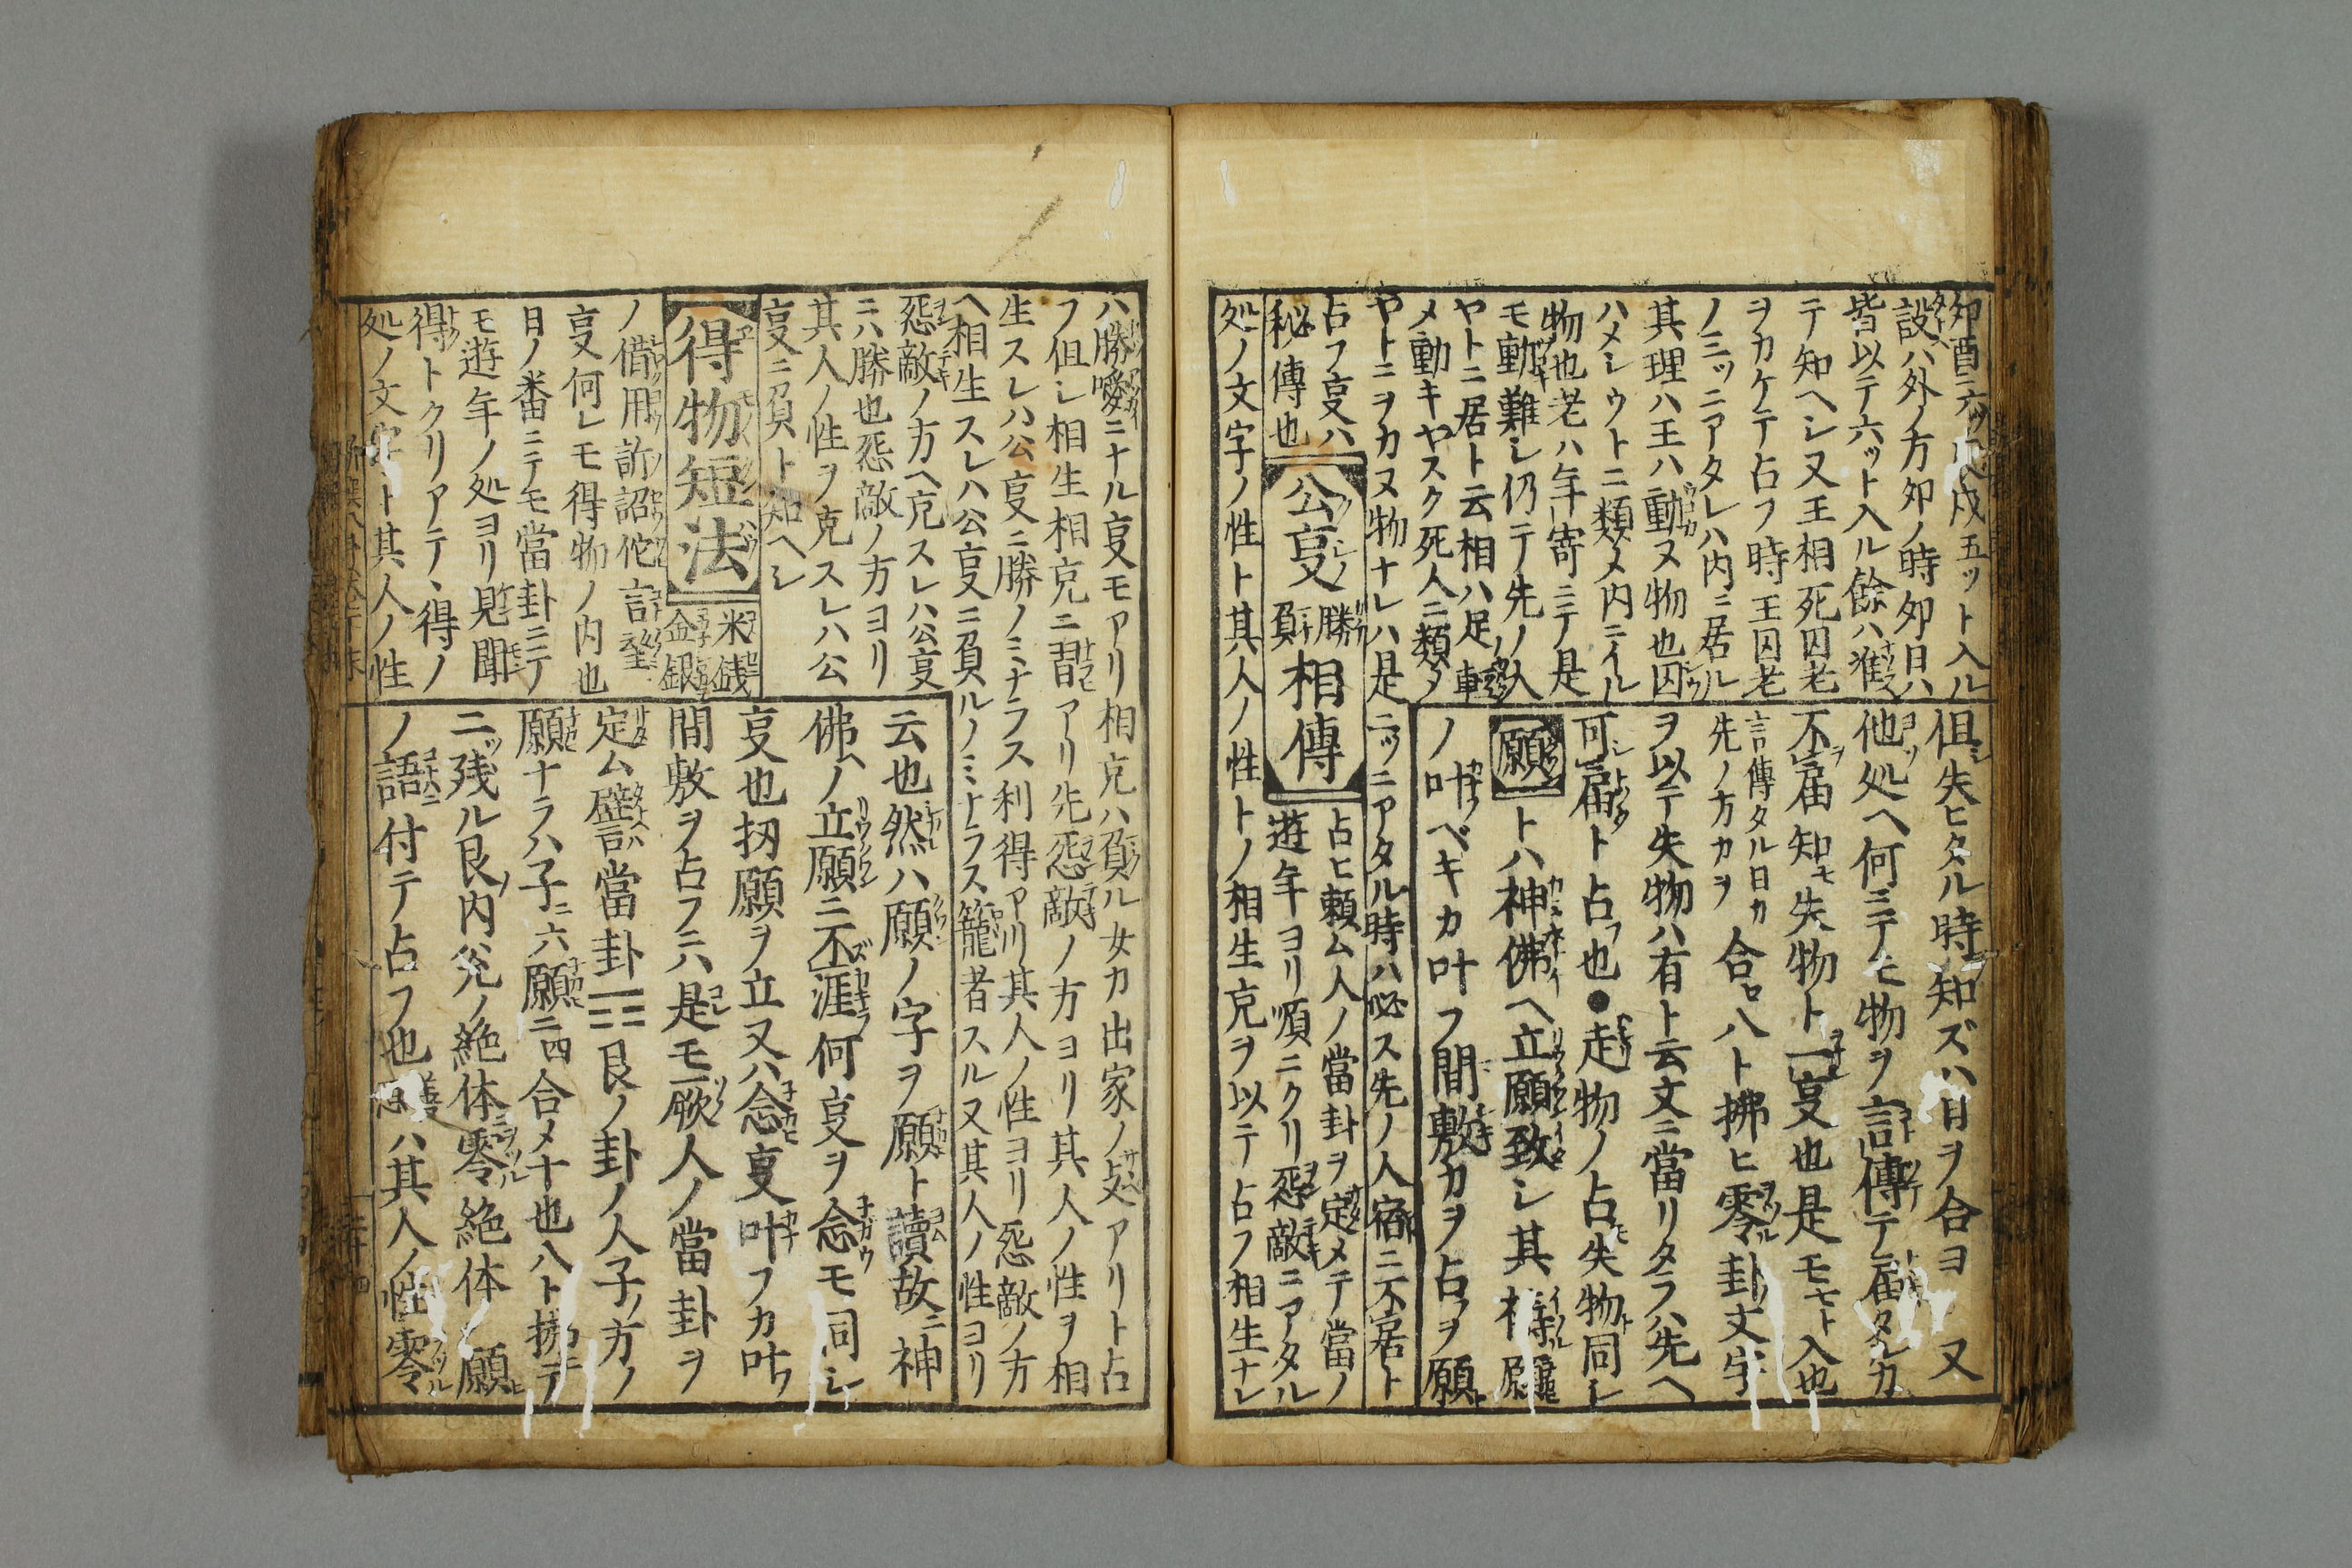 卯酉ニ六ッ戌五ット入ル
設ハ外ノ方卯ノ時卯日ハ
皆以テ六ット入ル餘ハ准ヘ
テ知ヘシ又王相死囚老
ヲカケテ占フ時王囚老
ノ三ッニアタレハ内ニ居ル
其理ハ王ハ動ヌ物也囚
ハメシウトニ類メ内ニイル
物也老ハ年寄ニテ是
モ動難シ仍テ先ノ人
ヤトニ居ト云相ハ足車
メ動キヤスク死人ニ類タ
ヤトニヲカヌ物ナレハ是ニッニアタル時ハ必ス先ノ人宿ニ不居ト
占フ㕝ハ
秘傳也
公㕝勝負相傳
占ヒ頼ム人ノ當卦ヲ定メテ當ノ
遊年ヨリ順ニクリ㤪敵ニアタル
処ノ文字ノ性ト其人ノ性トノ相生克ヲ以テ占フ相生ナレ
但失ヒタル時知ズハ日ヲ合ヨ又
他処ヘ何ニテモ物ヲ言傳テ届タルカ
不届知モ失物ト一㕝也是モモト入也
言傳タル日カ
先ノ方カヲ
合ロ八ト拂ヒ零卦ノ文字
ヲ以テ失物ハ有ト云文ニ當リタラハ先ヘ
可届ト占フ也●走物ノ占モ失物ト同シ
願
トハ神佛ヘ立願致シ其祈願
ノ叶ベキカ叶フ間敷カヲ占フヲ願ト
ハ勝噯ニナル㕝モアリ相克ハ負ル女カ出家ノアリト占
フ但シ相生相克ニ習アリ先㤪敵ノ方ヨリ其人ノ性ヲ相
生スレハ公㕝ニ勝ノミナラス利得アリ其人ノ性ヨリ㤪敵ノ方
ヘ相生スレハ公㕝ニ負ルノミナラス籠者スル又其人ノ性ヨリ
㤪敵ノ方ヘ克スレハ公㕝
ニハ勝也㤪敵ノ方ヨリ
其人ノ性ヲ克スレハ公
㕝ニ負ト知ヘシ
得物短法
米銭
金銀
ノ借用訴詔佗言望
㕝何レモ得物ノ内也
日ノ番ニテモ當卦ニテ
モ遊年ノ処ヨリ見聞
得トクリアテ、得ノ
処ノ文字ト其人ノ性
云也然ハ願ノ字ヲ願ト讀故ニ神
佛ヘノ立願ニ不涯何㕝ヲ念モ同シ
㕝也扨願ヲ立又ハ念㕝叶フカ叶フ
間敷ヲ占フニハ是モ厥人ノ當卦ヲ
定ム譬ハ當卦☶艮ノ卦ノ人子ノ方ノ
願ナラハ子ニ六願ニ四合メ十也八ト拂テ
ニッ残ル艮ノ内兊ノ絶体零絶体ノ願
ノ語ニ付テ占フ也善ハ其人ノ性零